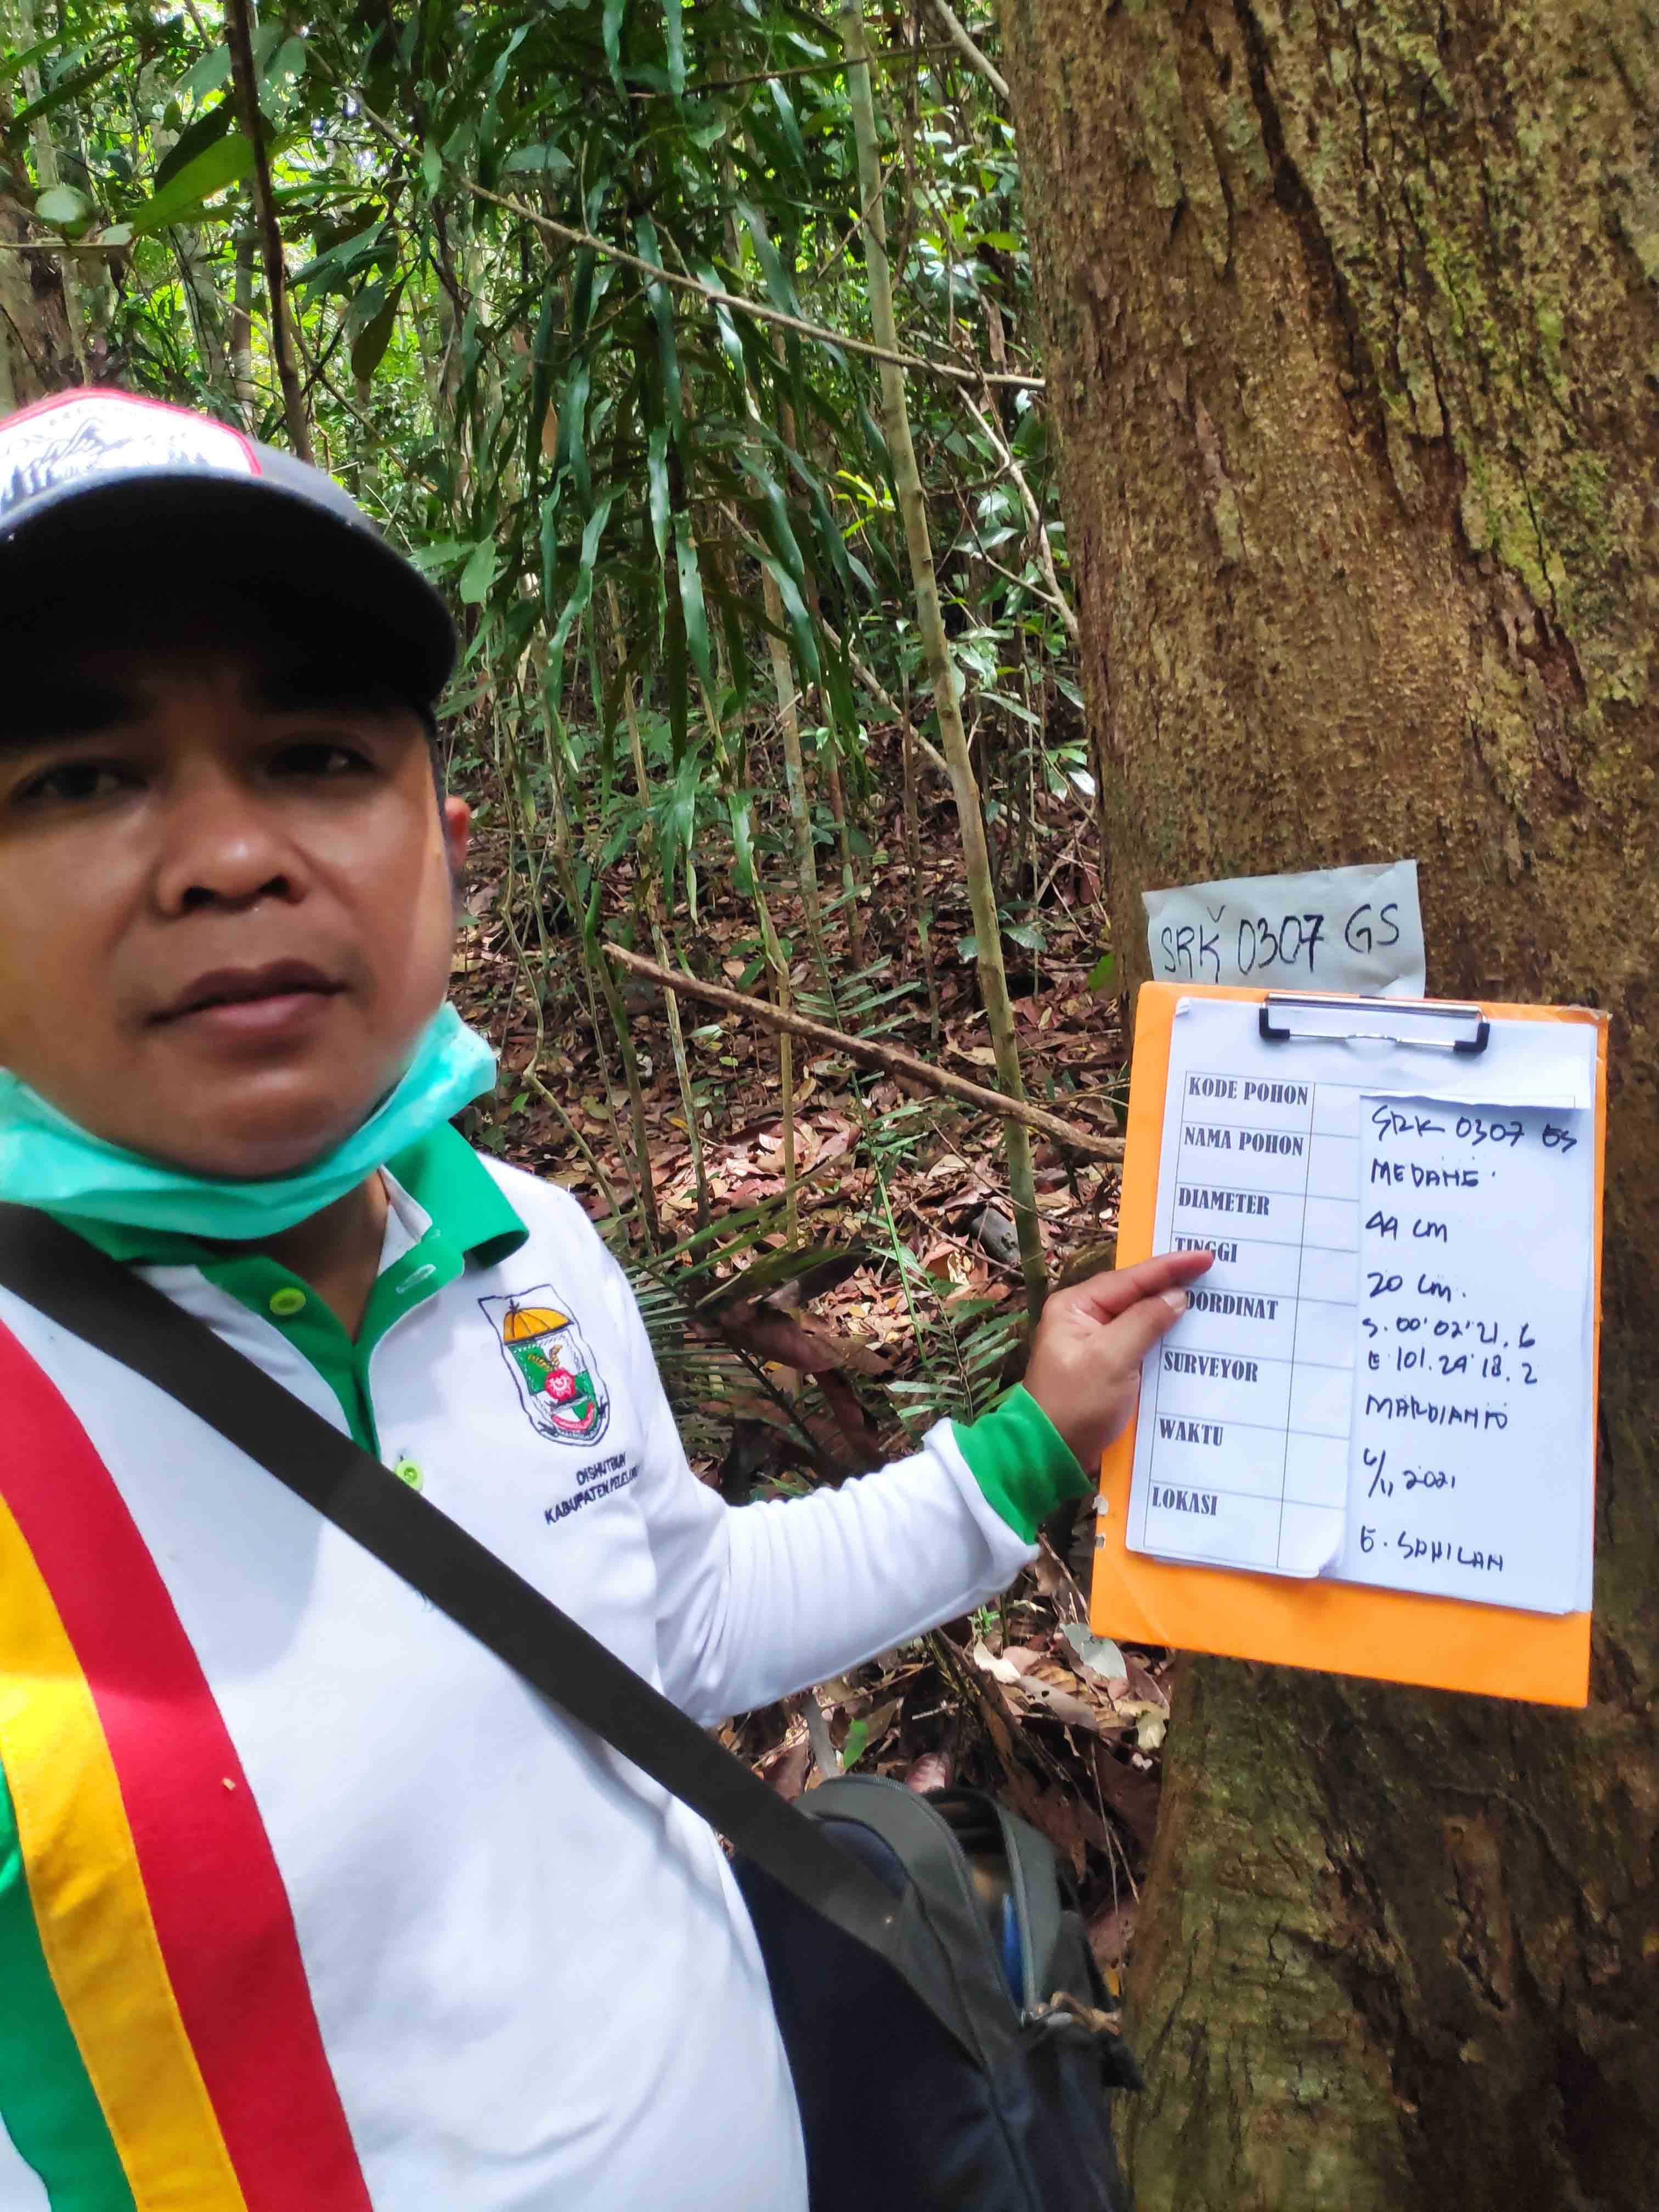 SRK 0307 GS
KODE POHON SRK 0307 GS
NAMA POHON MEDANG
DIAMETER 44 cm
TINGGI 20 cm.
KOORDINAT S. 00° 02' 21. 6
E 101. 24' 18. 2
SURVEYOR MARDIANTO
WAKTU 6/11 2021
LOKASI G. SAHILAN
DISHUTBUN
KABUPATEN